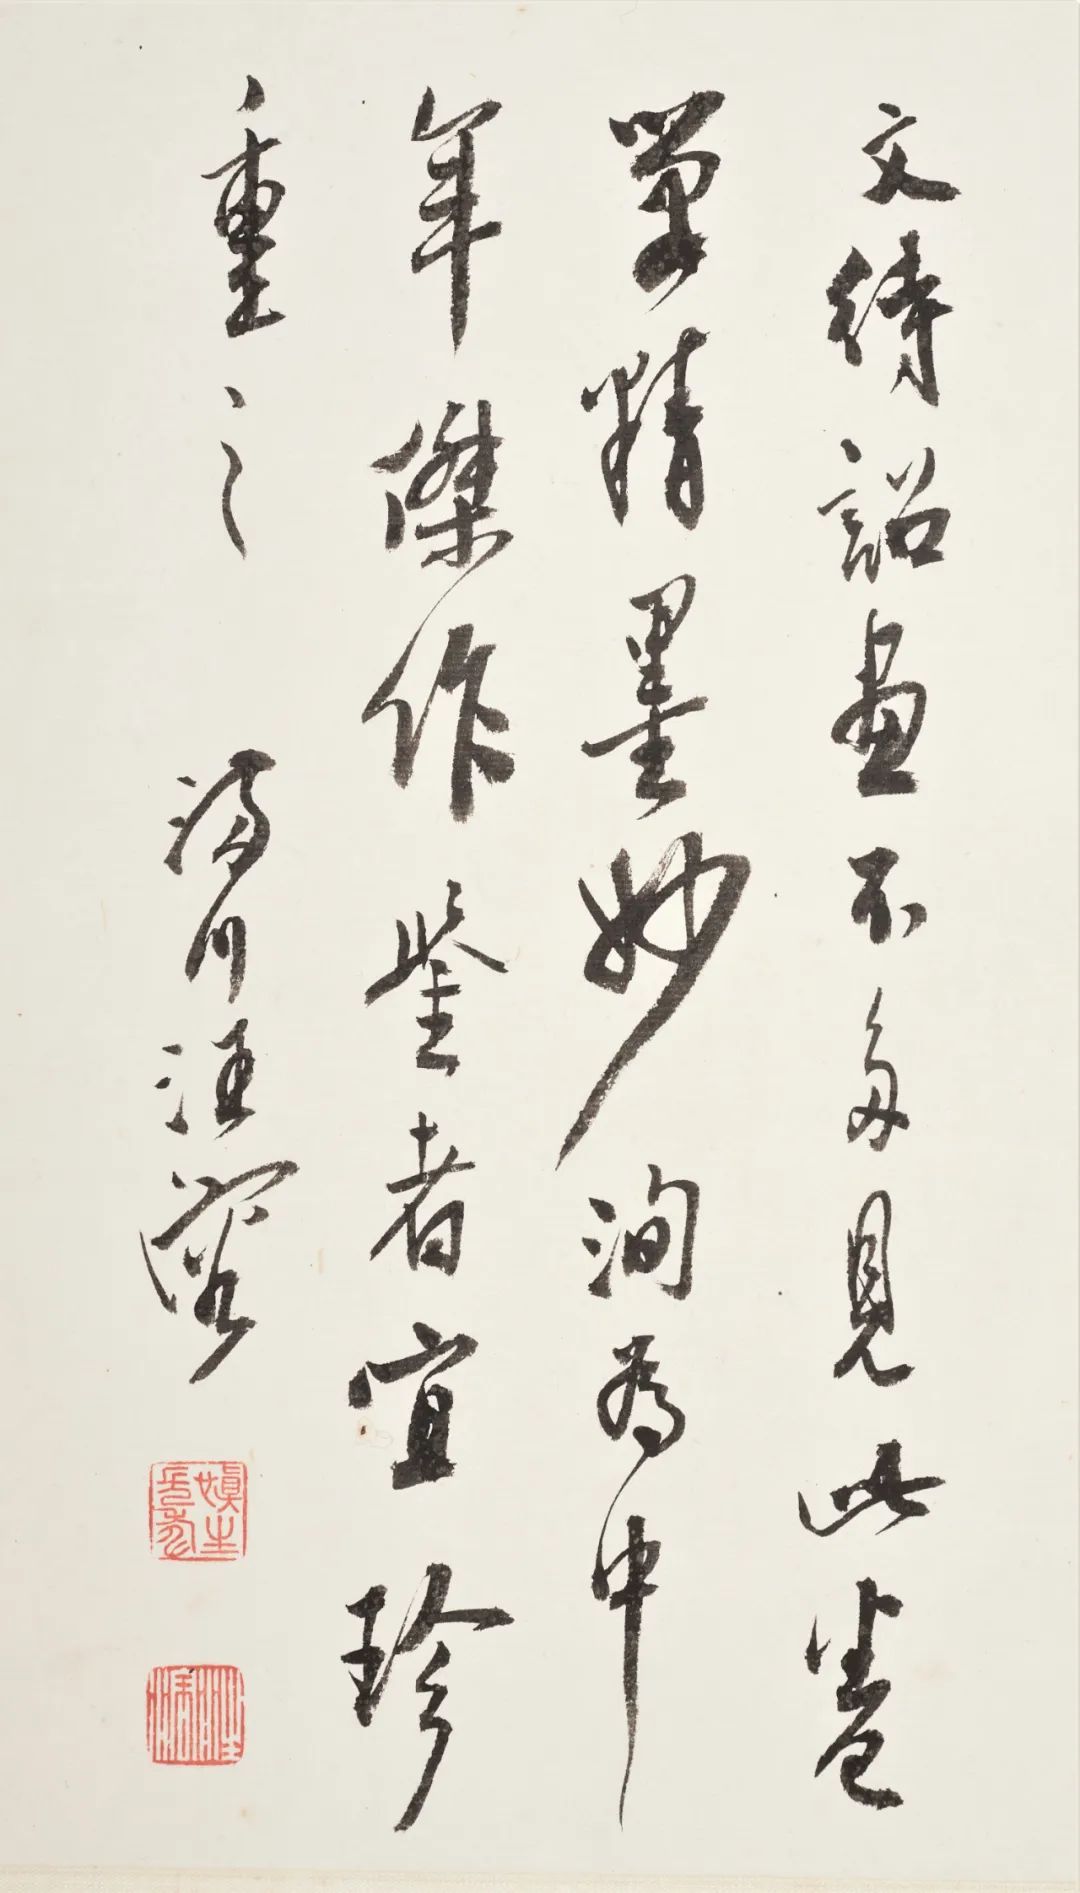 文待詔畫不多見此卷
筆精墨妙洵為中
年傑作鑒者宜珍
重之 滿川汪溶
汪溶